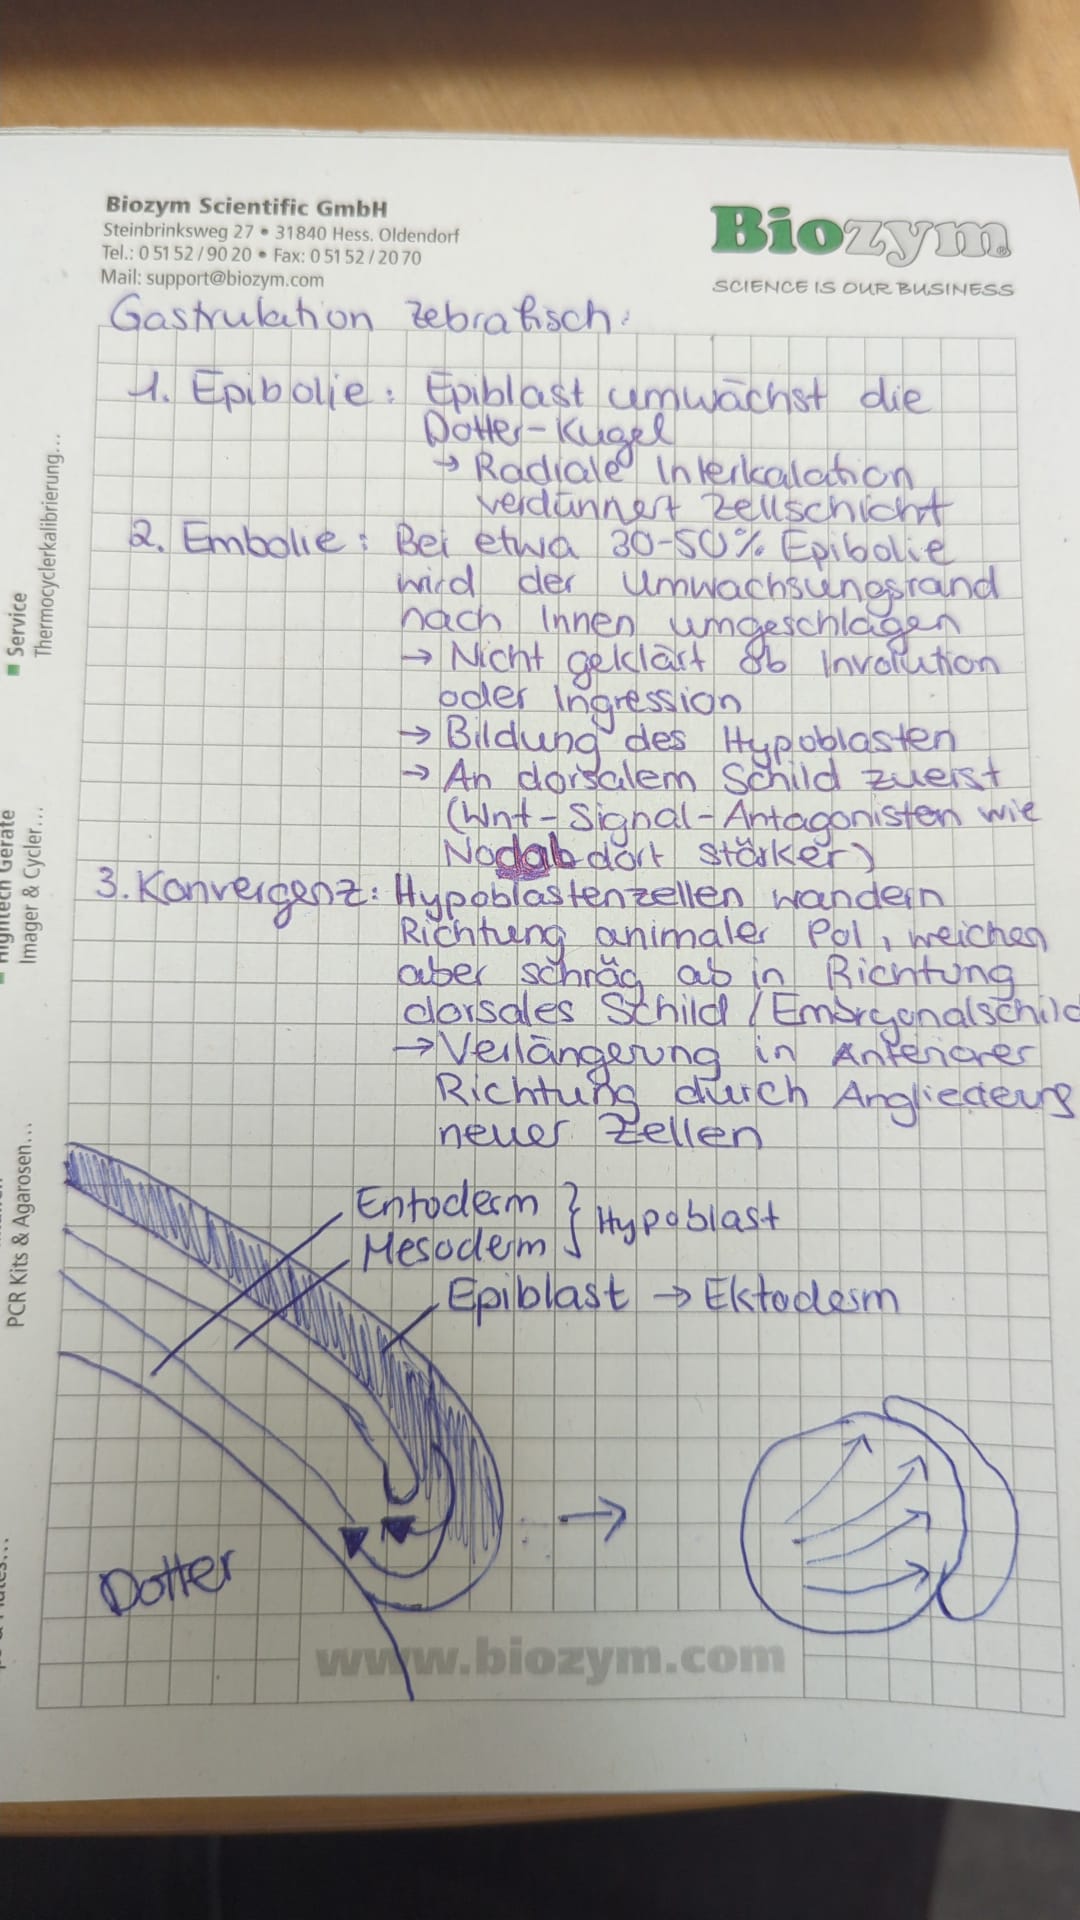 Biozym Scientific GmbH
Steinbrinksweg 27 • 31840 Hess. Oldendorf
Tel.: 0 51 52 / 90 20 • Fax: 0 51 52 / 20 70
Mail: support@biozym.com
Biozym
SCIENCE IS OUR BUSINESS
Gastrulation Zebrafisch:
1. Epibolie: Epiblast umwächst die
Dotter-Kugel
→ Radiale Interkalation
verdünnert Zellschicht
2. Embolie: Bei etwa 30-50% Epibolie
wird der Umwachsungsrand
nach Innen umgeschlagen
→ Nicht geklärt ob Involution
oder Ingression
→ Bildung des Hypoblasten
→ An dorsalem Schild zuerst
(Wnt-Signal-Antagonisten wie
dort stärker)
3. Konvergenz: Hypoblastenzellen wandern
Richtung animaler Pol, weichen
aber schräg ab in Richtung
dorsales Schild / Embryonalschild
→ Verlängerung in Anteriorer
Richtung durch Angliederung
neuer Zellen
Entoderm } Hypoblast
Mesoderm
Epiblast → Ektoderm
→
Dotter
www.biozym.com
Service
Thermocyclerkalibrierung...
Hightech Geräte
Imager & Cycler...
PCR Kits & Agarosen...